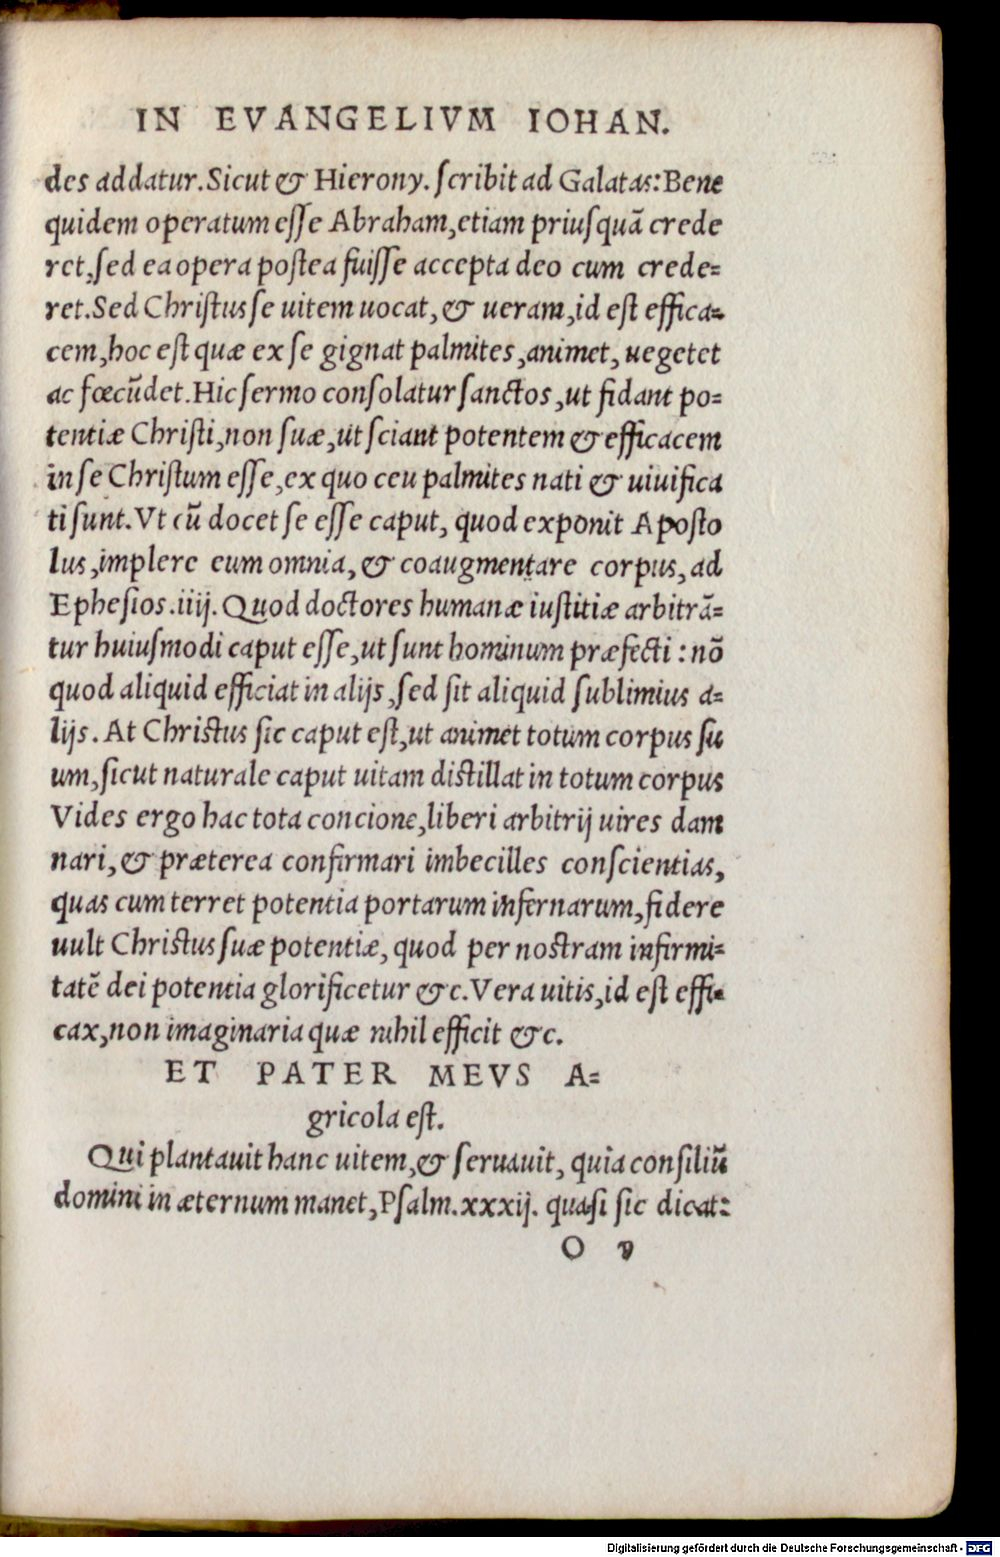 IN EVANGELIVM IOHAN.
des addatur. Sicut & Hierony. ſcribit ad Galatas: Bene
quidem operatum eſſe Abraham, etiam priuſquā crede
ret, ſed ea opera poſtea fuiſſe accepta deo cum crede=
ret. Sed Chriſtus ſe uitem uocat, & ueram, id eſt effica=
cem, hoc eſt quæ ex ſe gignat palmites, animet, uegetet
ac fœcūdet. Hic ſermo conſolatur ſanctos, ut fidant po=
tentiæ Chriſti, non ſuæ, ut ſciant potentem & efficacem
in ſe Chriſtum eſſe, ex quo ceu palmites nati & uiuifica
ti ſunt. Vt cū docet ſe eſſe caput, quod exponit Apoſto
lus, implere eum omnia, & coaugmentare corpus, ad
Epheſios. iiij. Quod doctores humanæ iuſtitiæ arbitrā=
tur huiuſmodi caput eſſe, ut ſunt hominum præfecti: nō
quod aliquid efficiat in alijs, ſed ſit aliquid ſublimius a=
lijs. At Chriſtus ſic caput eſt, ut animet totum corpus ſu
um, ſicut naturale caput uitam diſtillat in totum corpus
Vides ergo hac tota concione, liberi arbitrij uires dam
nari, & præterea confirmari imbecilles conſcientias,
quas cum terret potentia portarum infernarum, fidere
uult Chriſtus ſuæ potentiæ, quod per noſtram infirmi=
tatē dei potentia glorificetur &c. Vera uitis, id eſt effi=
cax, non imaginaria quæ nihil efficit &c.
ET PATER MEVS A=
gricola eſt.
Qui plantauit hanc uitem, & ſeruauit, quia conſiliū
domini in æternum manet, Pſalm. xxxij. quaſi ſic dicat:
O v
Digitalisierung gefördert durch die Deutsche Forschungsgemeinschaft - DFG